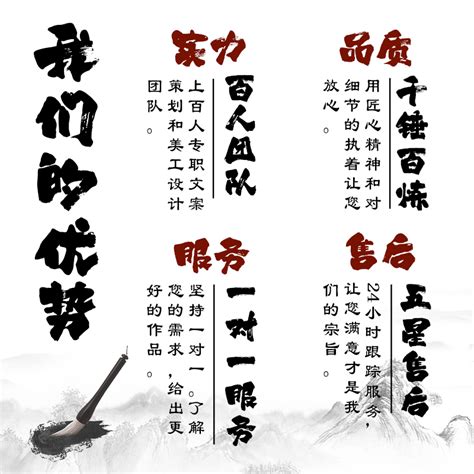 我们的优势
实力
百人团队
上百人专职文案
策划和美工设计
团队。
品质
千锤百炼
用匠心精神和对
细节的执着让您
放心。
服务
一对一服务
坚持一对一。了解
您的需求,给出更
好的作品。
售后
五星售后
24小时跟踪服务,
让您满意才是我
们的宗旨。